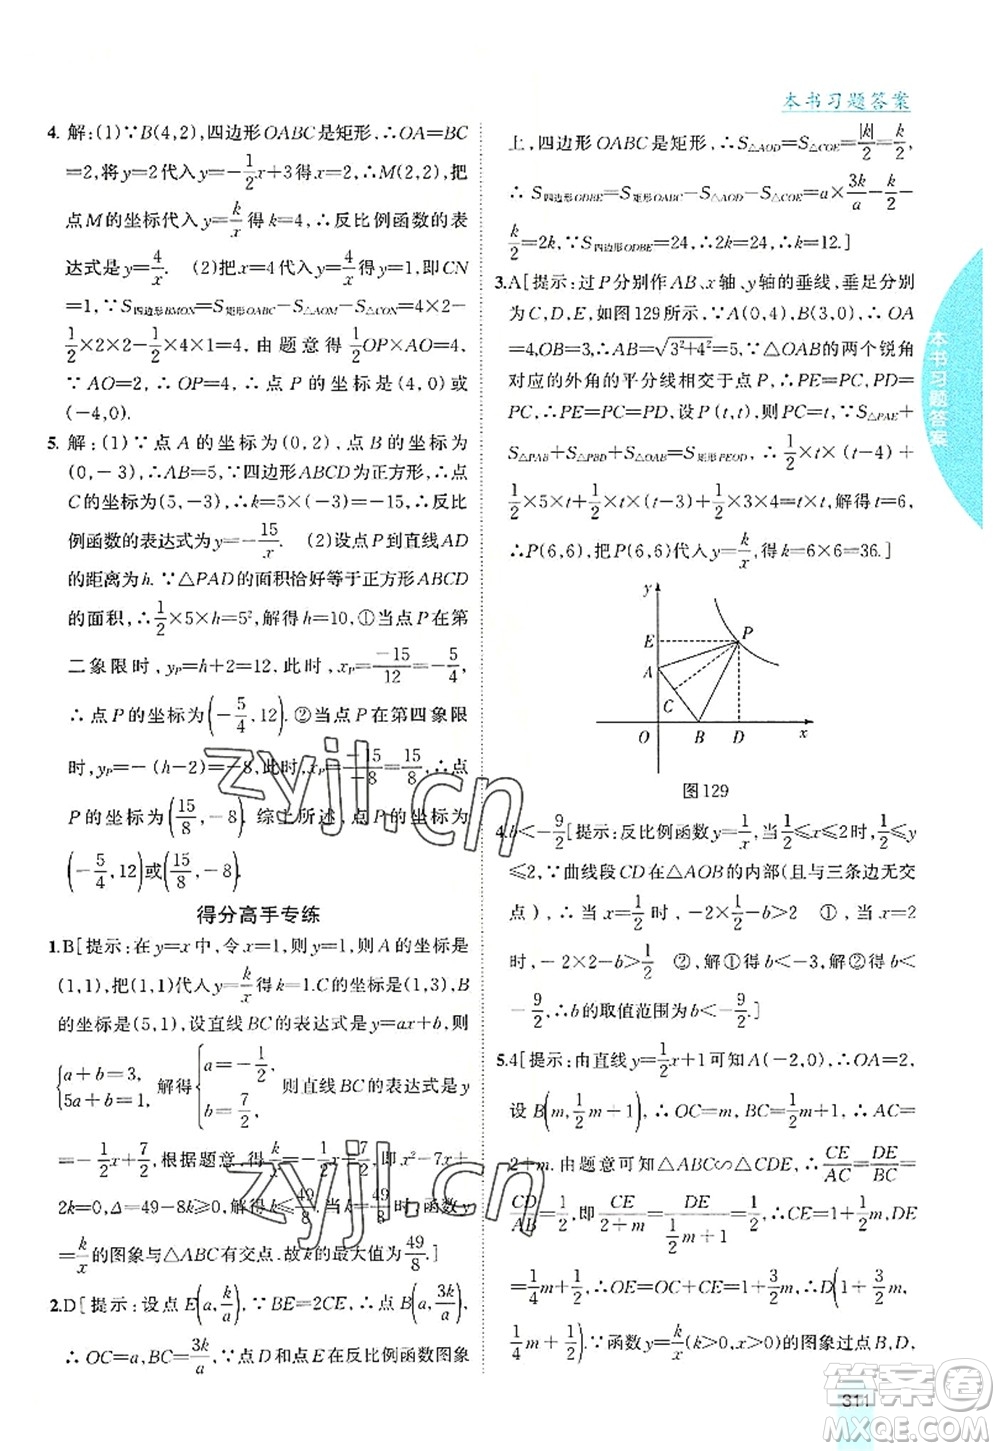 本书习题答案
4. 解:(1)∵B(4,2),四边形OABC是矩形,∴OA=BC
=2,将y=2代入y=-1/2x+3得x=2,∴M(2,2),把
点M的坐标代入y=k/x得k=4,∴反比例函数的表
达式是y=4/x. (2)把x=4代入y=4/x得y=1,即CN
=1,∵S四边形BMON=S矩形OABC-S△AOM-S△CON=4×2-
2-2=4,由题意得1/2OP×AO=4,
∵AO=2,∴OP=4,∴点P的坐标为(4,0)或
(-4,0).
5. 解:(1)∵点A的坐标为(0,2),点B的坐标为
(0,-3),∴AB=5,∵四边形ABCD为正方形,∴点
C的坐标为(5,-3),∴k=5×(-3)=-15,∴反比
例函数的表达式为y=-15/x. (2)设点P到直线AD
的距离为h.∵△PAD的面积恰好等于正方形ABCD
的面积,∴1/2×5×h=5²,解得h=10,①当点P在第
二象限时,yP=h+2=12.此时,xP=-15/12=-5/4,
∴点P的坐标为(-5/4,12).②当点P在第四象限
时,yP=-(h-2)=-8.此时,xP=-15/-8=15/8,∴点
P的坐标为(15/8,-8).综上所述,点P的坐标为
(-5/4,12)或(15/8,-8).
得分高手专练
1.B[提示:在y=x中,令x=1,则y=1,则A的坐标是
(1,1),把(1,1)代入y=k/x得k=1.C的坐标是(1,3),B
的坐标是(5,1),设直线BC的表达式是y=ax+b,则
{a+b=3, 5a+b=1, 解得{a=-1/2, b=7/2, 则直线BC的表达式是y
=-1/2x+7/2,根据题意,得k/x=-1/2x+7/2,即x²-7x+
2k=0,Δ=49-8k≥0,解得k≤49/8.当k=49/8时,函数y
=k/x的图象与△ABC有交点.故k的最大值为49/8.]
2.D[提示:设点E(a,k/a).∵BE=2CE,∴点B(a,3k/a),
∴OC=a,BC=3k/a.∵点D和点E在反比例函数图象
上,四边形OABC是矩形,∴S△AOD=S△COE=|k|/2=k/2,
∴S四边形ODBE=S矩形OABC-S△AOD-S△COE=a×3k/a-k/2-
k/2=2k,∵S四边形ODBE=24,∴2k=24,∴k=12.]
3.A[提示:过P分别作AB、x轴、y轴的垂线,垂足分别
为C,D,E,如图129所示,∵A(0,4),B(3,0),∴OA
=4,OB=3,∴AB=√3²+4²=5,∵△OAB的两个锐角
对应的外角的平分线相交于点P,∴PE=PC,PD=
PC,∴PE=PC=PD,设P(t,t),则PC=t,∵S△PAE+
S△PAB+S△PBD+S△OAB=S矩形PEOD,∴1/2×t×(t-4)+
1/2×5×t+1/2×t×(t-3)+1/2×3×4=t×t,解得t=6,
∴P(6,6),把P(6,6)代入y=k/x,得k=6×6=36.]
y
E
P
A
C
O
B
D
x
图129
4.b<-9/2[提示:反比例函数y=1/x,当1/2≤x≤2时,1/2≤y
≤2,∵曲线段CD在△AOB的内部(与三条边无交
点),∴当x=1/2时,-2×1/2-b>2 ①,当x=2
时,-2×2-b>1/2 ②,解①得b<-3,解②得b<
-9/2,∴b的取值范围为b<-9/2.]
5.4[提示:由直线y=1/2x+1可知A(-2,0),∴OA=2,
设B(m,1/2m+1),∴OC=m,BC=1/2m+1,∴AC=
2+m.由题意可知△ABC∽△CDE,∴CE/AC=DE/BC=
CD/AB=1/2,即CE/2+m=DE/1/2m+1=1/2,∴CE=1+1/2m,DE
=1/4m+1/2,∴OE=OC+CE=1+3/2m,∴D(1+3/2m,
1/4m+1/2).∵函数y=k/x(k>0,x>0)的图象过点B,D,
本书习题答案
311
zyjl.cn
zyjl.cn
答案圈
MXQE.COM